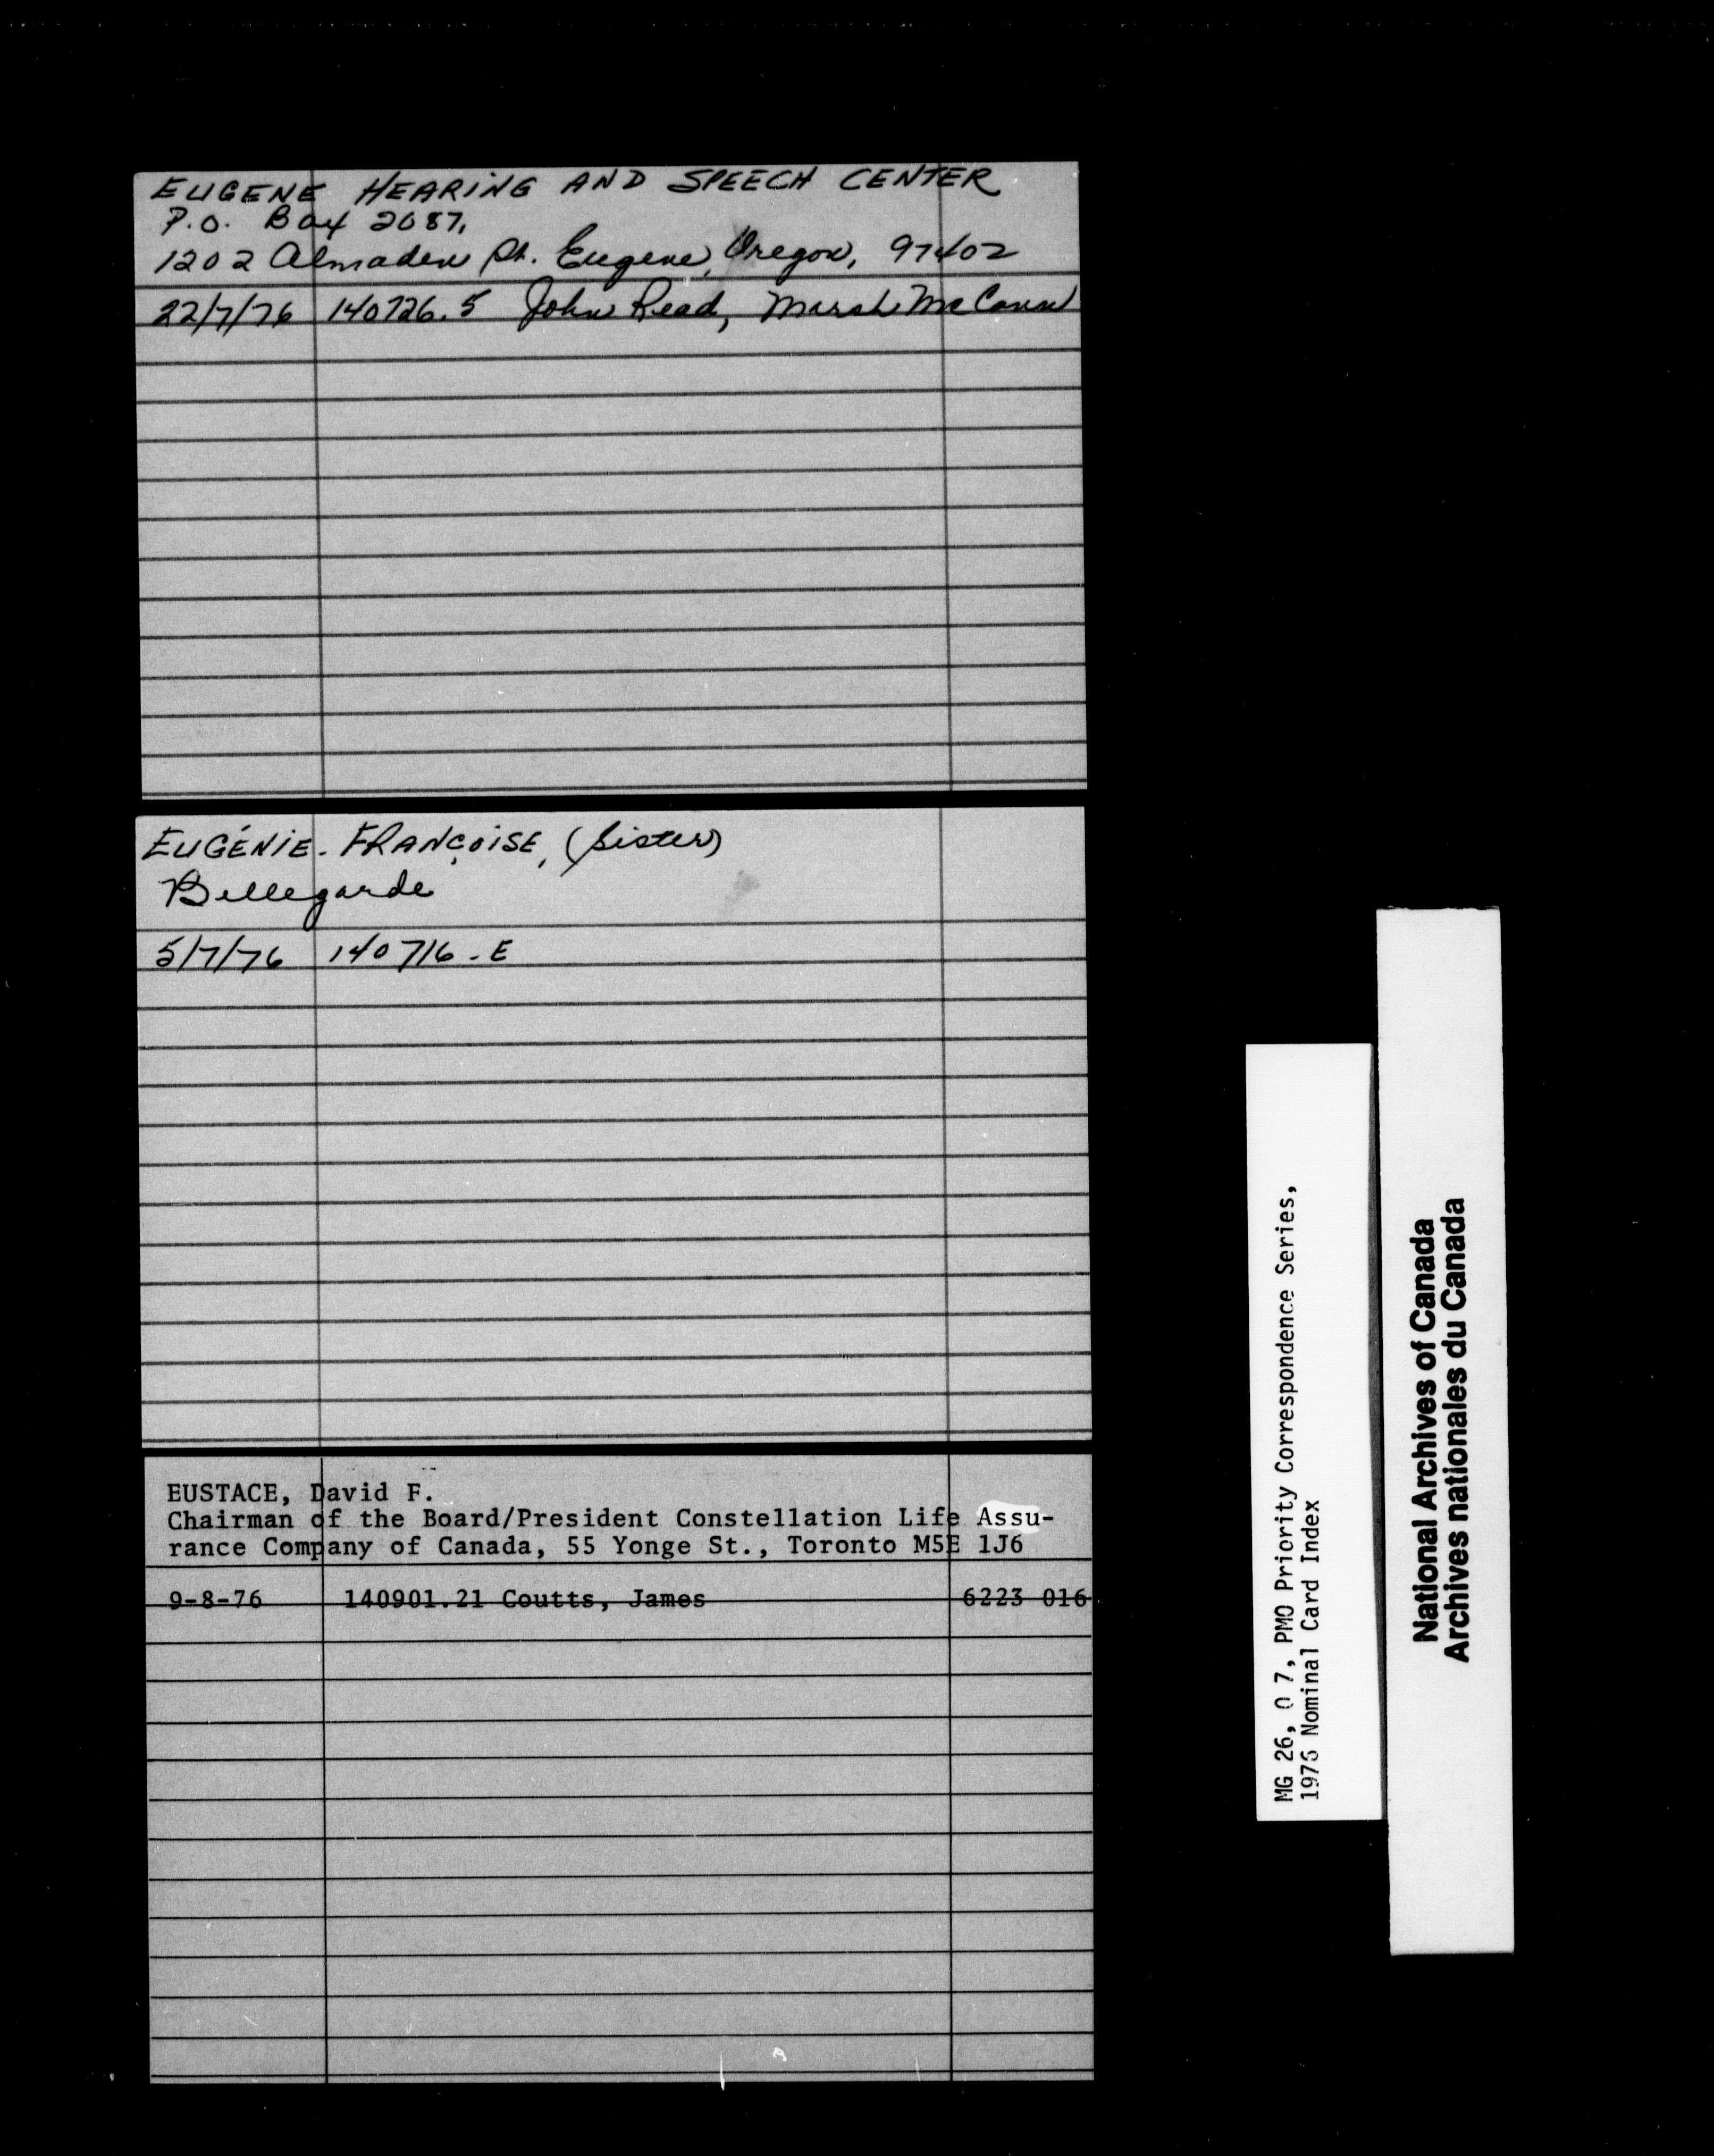 EUGENE HEARING AND SPEECH CENTER
P.O. Box 2087,
1202 Almaden St. Eugene, Oregon, 97402
22/7/76 140726.5 John Read, Marsh McCann
EUGÉNIE-FRANÇOISE, (Sister)
Bellegarde
5/7/76 140716-E
EUSTACE, David F.
Chairman of the Board/President Constellation Life Assu-
rance Company of Canada, 55 Yonge St., Toronto M5E 1J6
9-8-76 140901.21 Coutts, James 6223 016
MG 26, O 7, PMO Priority Correspondence Series,
1976 Nominal Card Index
National Archives of Canada
Archives nationales du Canada